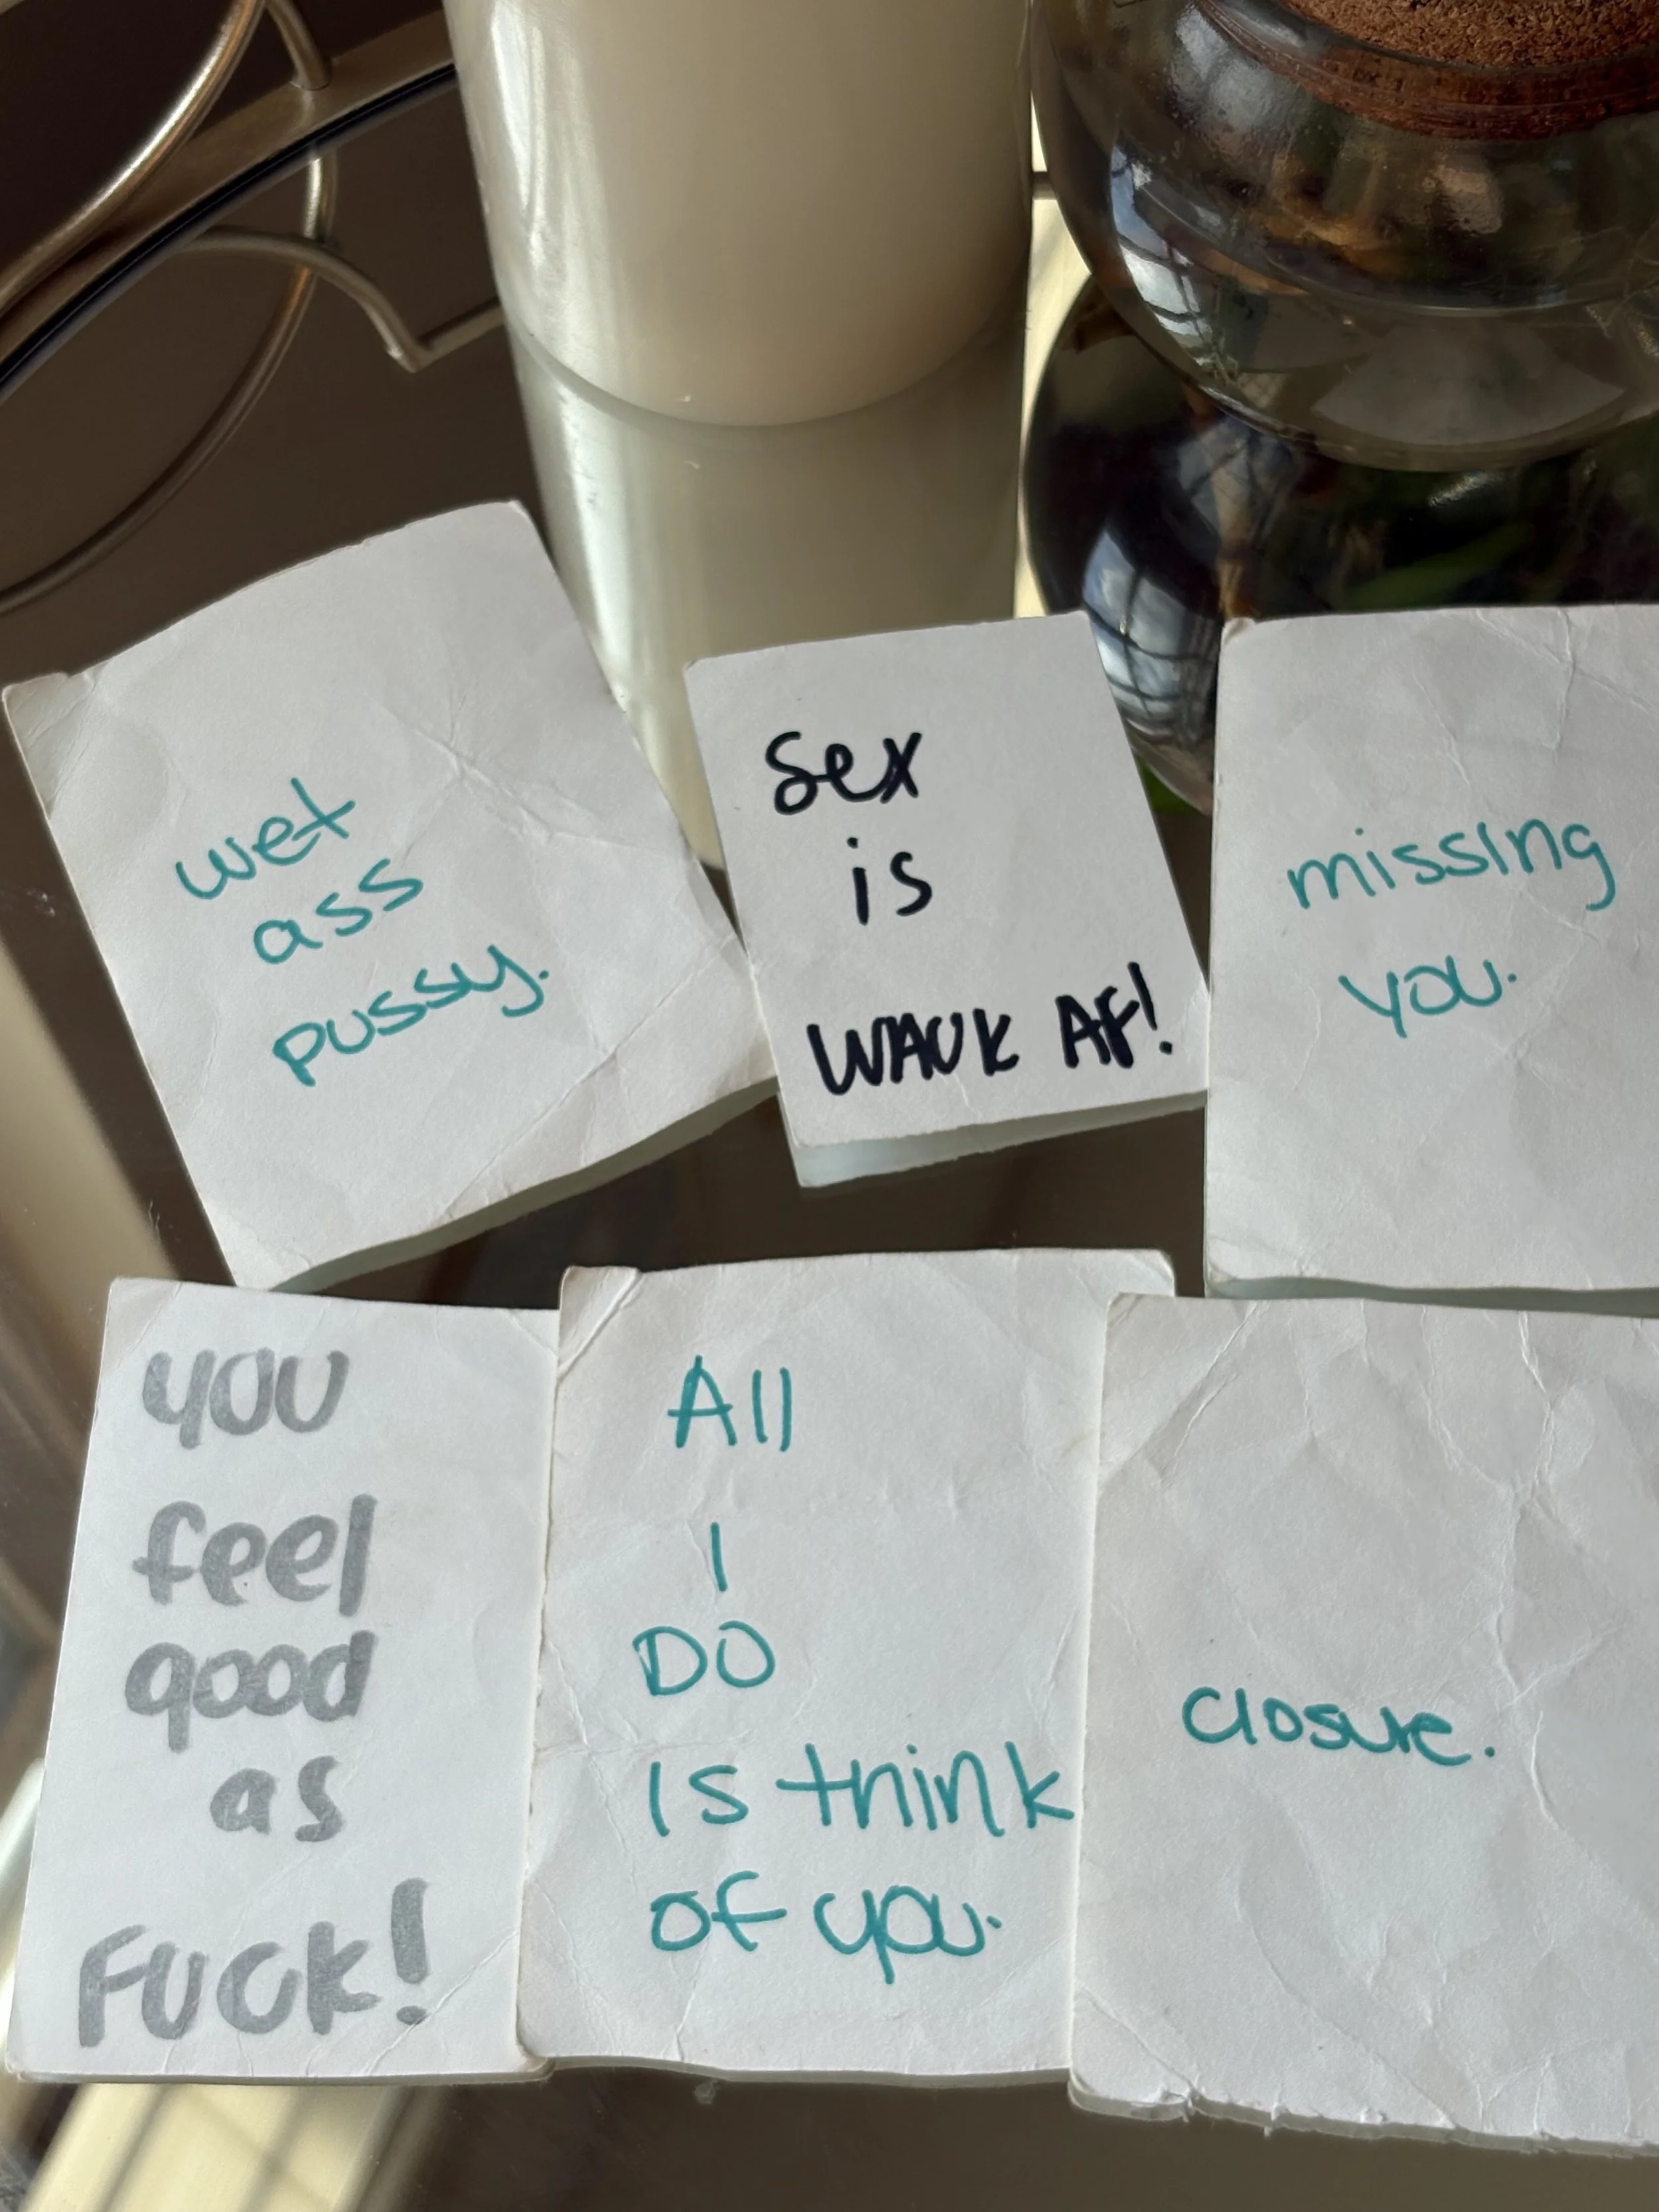 wet
ass
pussy.
Sex
is
WAUK AF!
missing
you.
you
feel
good
as
FUCK!
All
I
DO
Is think
of you.
closure.